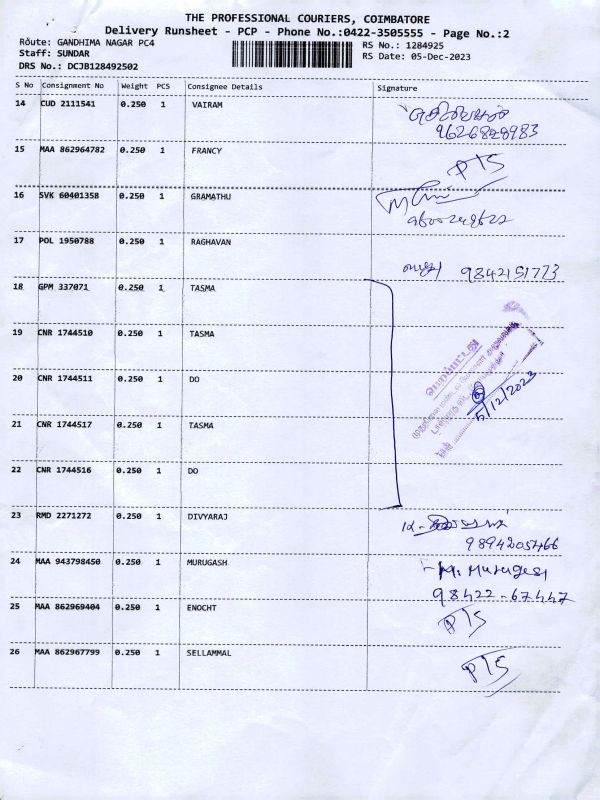 THE PROFESSIONAL COURIERS, COIMBATORE
Delivery Runsheet - PCP - Phone No.:0422-3505555 - Page No.:2
Route: GANDHIMA NAGAR PC4
RS No.: 1284925
Staff: SUNDAR
RS Date: 05-Dec-2023
DRS No.: DCJB128492502
S No Consignment No Weight PCS Consignee Details Signature
14 CUD 2111541 0.250 1 VAIRAM
9626828983
15 MAA 862964782 0.250 1 FRANCY P/S
16 SVK 60401358 0.250 1 GRAMATHU
17 POL 1950788 0.250 1 RAGHAVAN
9842151773
18 GPM 337071 0.250 1 TASMA
19 CNR 1744510 0.250 1 TASMA
பெறப்பட்டது
20 CNR 1744511 0.250 1 DO
5/12/2023
21 CNR 1744517 0.250 1 TASMA
22 CNR 1744516 0.250 1 DO
23 RMD 2271272 0.250 1 DIVYARAJ
9894205466
24 MAA 943798450 0.250 1 MURUGASH
M. Murugesh
98422-67447
25 MAA 862969404 0.250 1 ENOCHT P/S
26 MAA 862967799 0.250 1 SELLAMMAL P/S